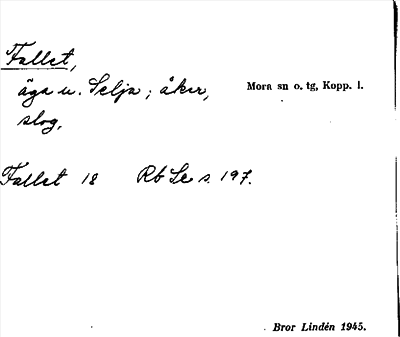 Fallet,
äga u. Selja; åker, Mora sn o. tg, Kopp. l.
slog.
Fallet 18 Rb Le s. 197.
Bror Lindén 1945.